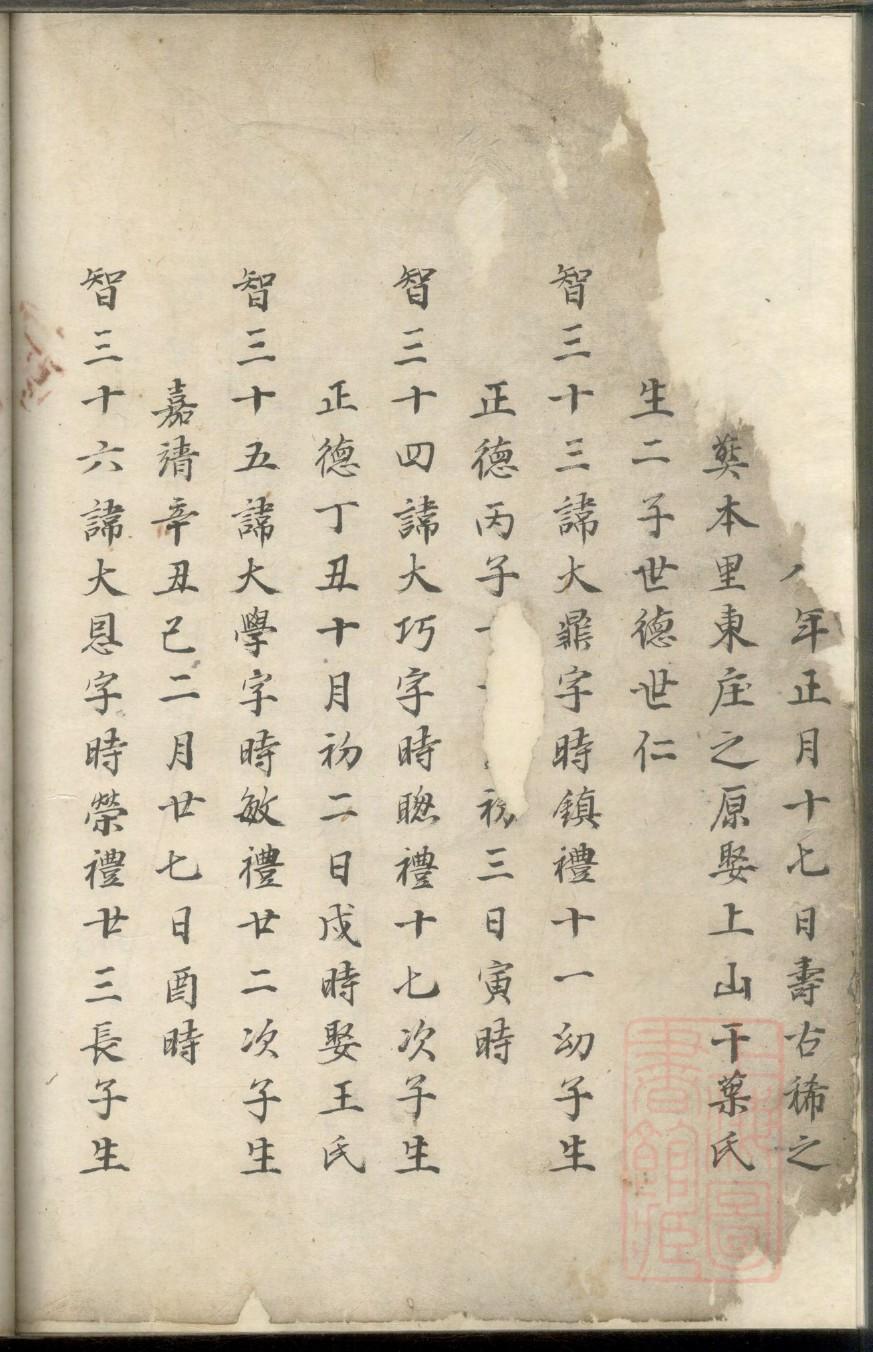 年正月十七日壽古稀之
𦵏本里東庄之原娶上山干葉氏
生二子世德世仁
智三十三諱大鼎字時鎮禮十一幼子生
正德丙子初三日寅時
智三十四諱大巧字時聰禮十七次子生
正德丁丑十月初二日戌時娶王氏
智三十五諱大學字時敏禮廿二次子生
嘉靖辛丑己二月廿七日酉時
智三十六諱大恩字時榮禮廿三長子生
上海圖書館藏